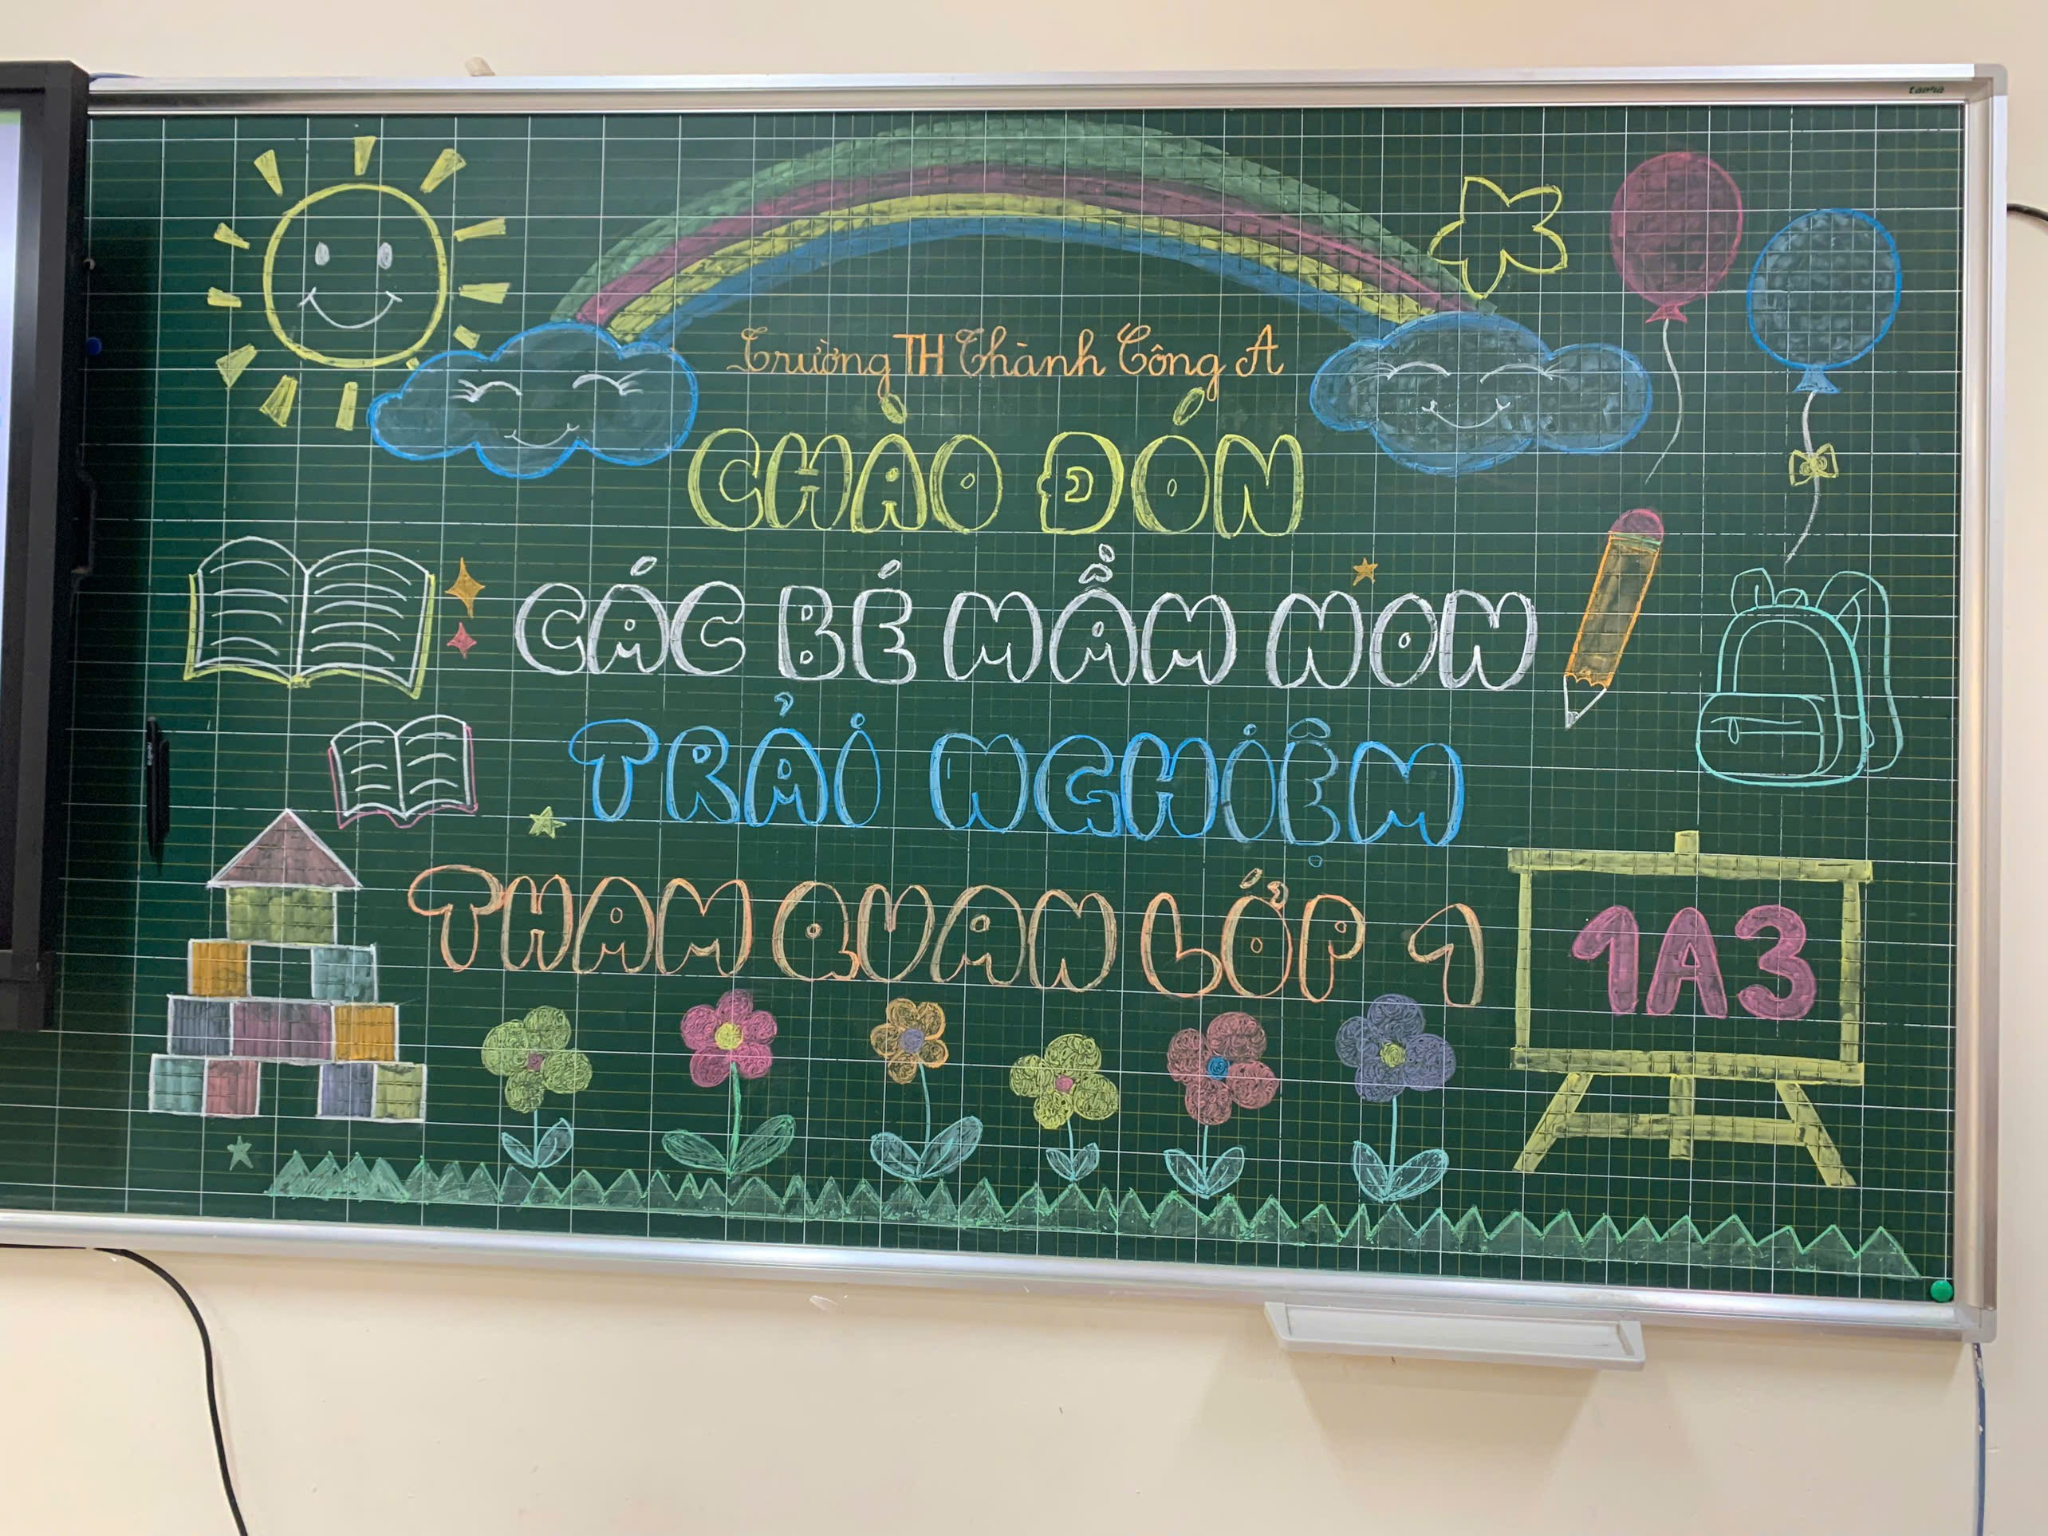 Trường TH Thành Công A
CHÀO ĐÓN
CÁC BÉ MẦM NON
TRẢI NGHIỆM
THAM QUAN LỚP 1
1A3